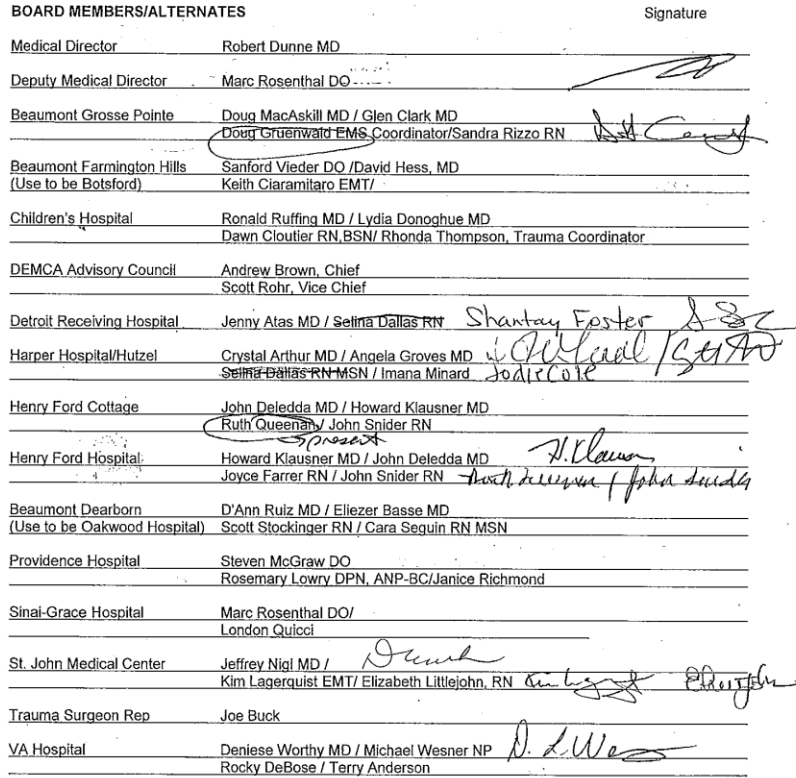 BOARD MEMBERS/ALTERNATES Signature
Medical Director Robert Dunne MD
Deputy Medical Director Marc Rosenthal DO
Beaumont Grosse Pointe Doug MacAskill MD / Glen Clark MD
Doug Gruenwald EMS Coordinator/Sandra Rizzo RN
Beaumont Farmington Hills Sanford Vieder DO /David Hess, MD
(Use to be Botsford) Keith Ciaramitaro EMT/
Children's Hospital Ronald Ruffing MD / Lydia Donoghue MD
Dawn Cloutier RN,BSN/ Rhonda Thompson, Trauma Coordinator
DEMCA Advisory Council Andrew Brown, Chief
Scott Rohr, Vice Chief
Detroit Receiving Hospital Jenny Atas MD / Selina Dallas RN Shantay Foster
Harper Hospital/Hutzel Crystal Arthur MD / Angela Groves MD
Selina Dallas RN MSN / Imana Minard Jodie Cole
Henry Ford Cottage John Deledda MD / Howard Klausner MD
Ruth Queenan/ John Snider RN
present
Henry Ford Hospital Howard Klausner MD / John Deledda MD H. Klausner
Joyce Farrer RN / John Snider RN Ruth Queenan / John Snider
Beaumont Dearborn D'Ann Ruiz MD / Eliezer Basse MD
(Use to be Oakwood Hospital) Scott Stockinger RN / Cara Seguin RN MSN
Providence Hospital Steven McGraw DO
Rosemary Lowry DPN, ANP-BC/Janice Richmond
Sinai-Grace Hospital Marc Rosenthal DO/
London Quicci
St. John Medical Center Jeffrey Nigl MD /
Kim Lagerquist EMT/ Elizabeth Littlejohn, RN
Trauma Surgeon Rep Joe Buck
VA Hospital Deniese Worthy MD / Michael Wesner NP
Rocky DeBose / Terry Anderson